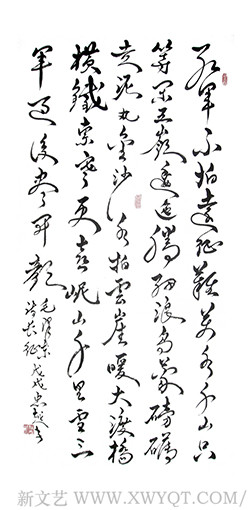 红军不怕远征难万水千山只
等闲五岭逶迤腾细浪乌蒙磅礴
走泥丸金沙水拍云崖暖大渡桥
横铁索寒更喜岷山千里雪三
军过后尽开颜
毛泽东
诗长征 戊戌
新文艺 WWW.XWYQT.COM/